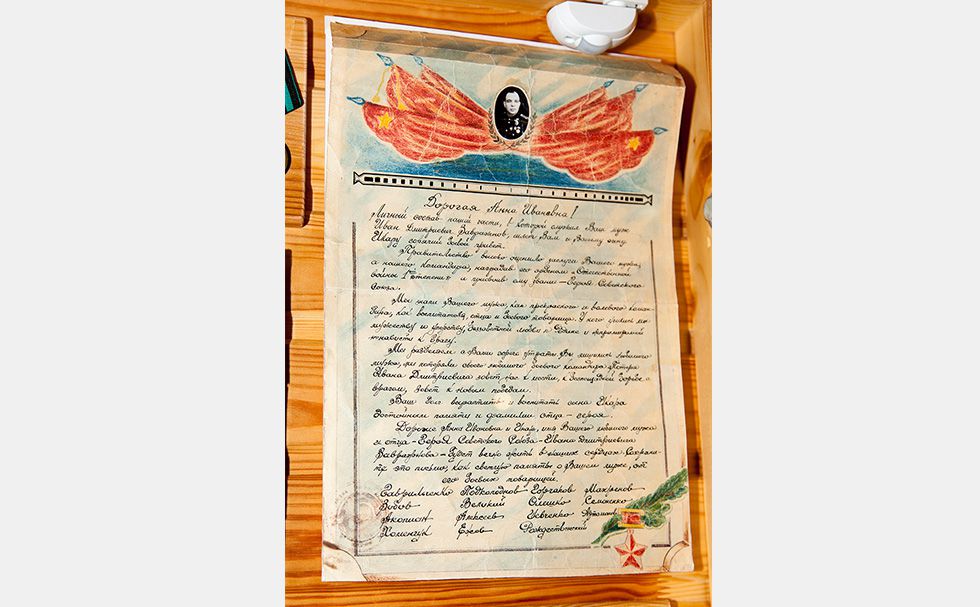 Дорогая Анна Ивановна!
Личный состав нашей части, в которой служил Ваш муж
Иван Дмитриевич Завражнов, шлет Вам и Вашему сыну
Икару горячий боевой привет.
Правительство высоко оценило заслуги Вашего мужа,
а нашего командира, наградив его орденом „Отечественной
войны I степени" и присвоив ему звание – Героя Советского
Союза.
Мы знали Вашего мужа, как прекрасного и волевого коман-
дира, как воспитателя, отца и боевого товарища. У него учились мы
мужеству и упорству, беззаветной любви к Родине и
ненависти к врагу.
Мы разделяем с Вами горечь утраты. Вы лишились любимого
мужа, мы потеряли своего любимого боевого командира.
Ивана Дмитриевича зовет нас к мести, к беспощадной борьбе с
врагом, зовет к новым победам.
Ваш долг вырастить и воспитать сына Икара
достойным памяти и фамилии отца – героя.
Дорогие Анна Ивановна и Икар, имя Вашего любимого мужа
и отца – Героя Советского Союза – Ивана Дмитриевича
Завражнова – будет вечно жить в наших сердцах. Сохрани-
те это письмо, как светлую память о Вашем муже, от
его боевых товарищей.
Гаврильченко Подколоднов Горчаков Махренов
Зобов Великий Олешко Семененко
Акопион Алексеев Шевченко
Хоменчук Ежов Рождественский